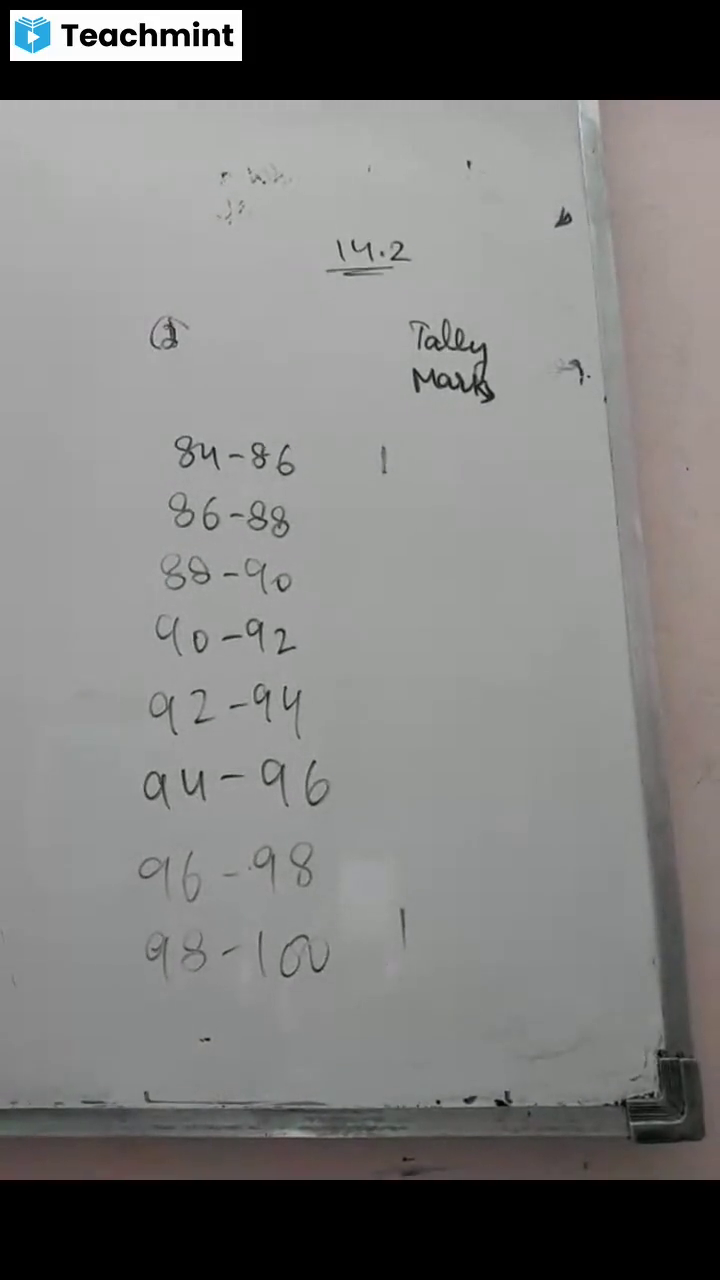 Teachmint
14.2
Tally
Marks
84-86 |
86-88
88-90
90-92
92-94
94-96
96-98
98-100 |